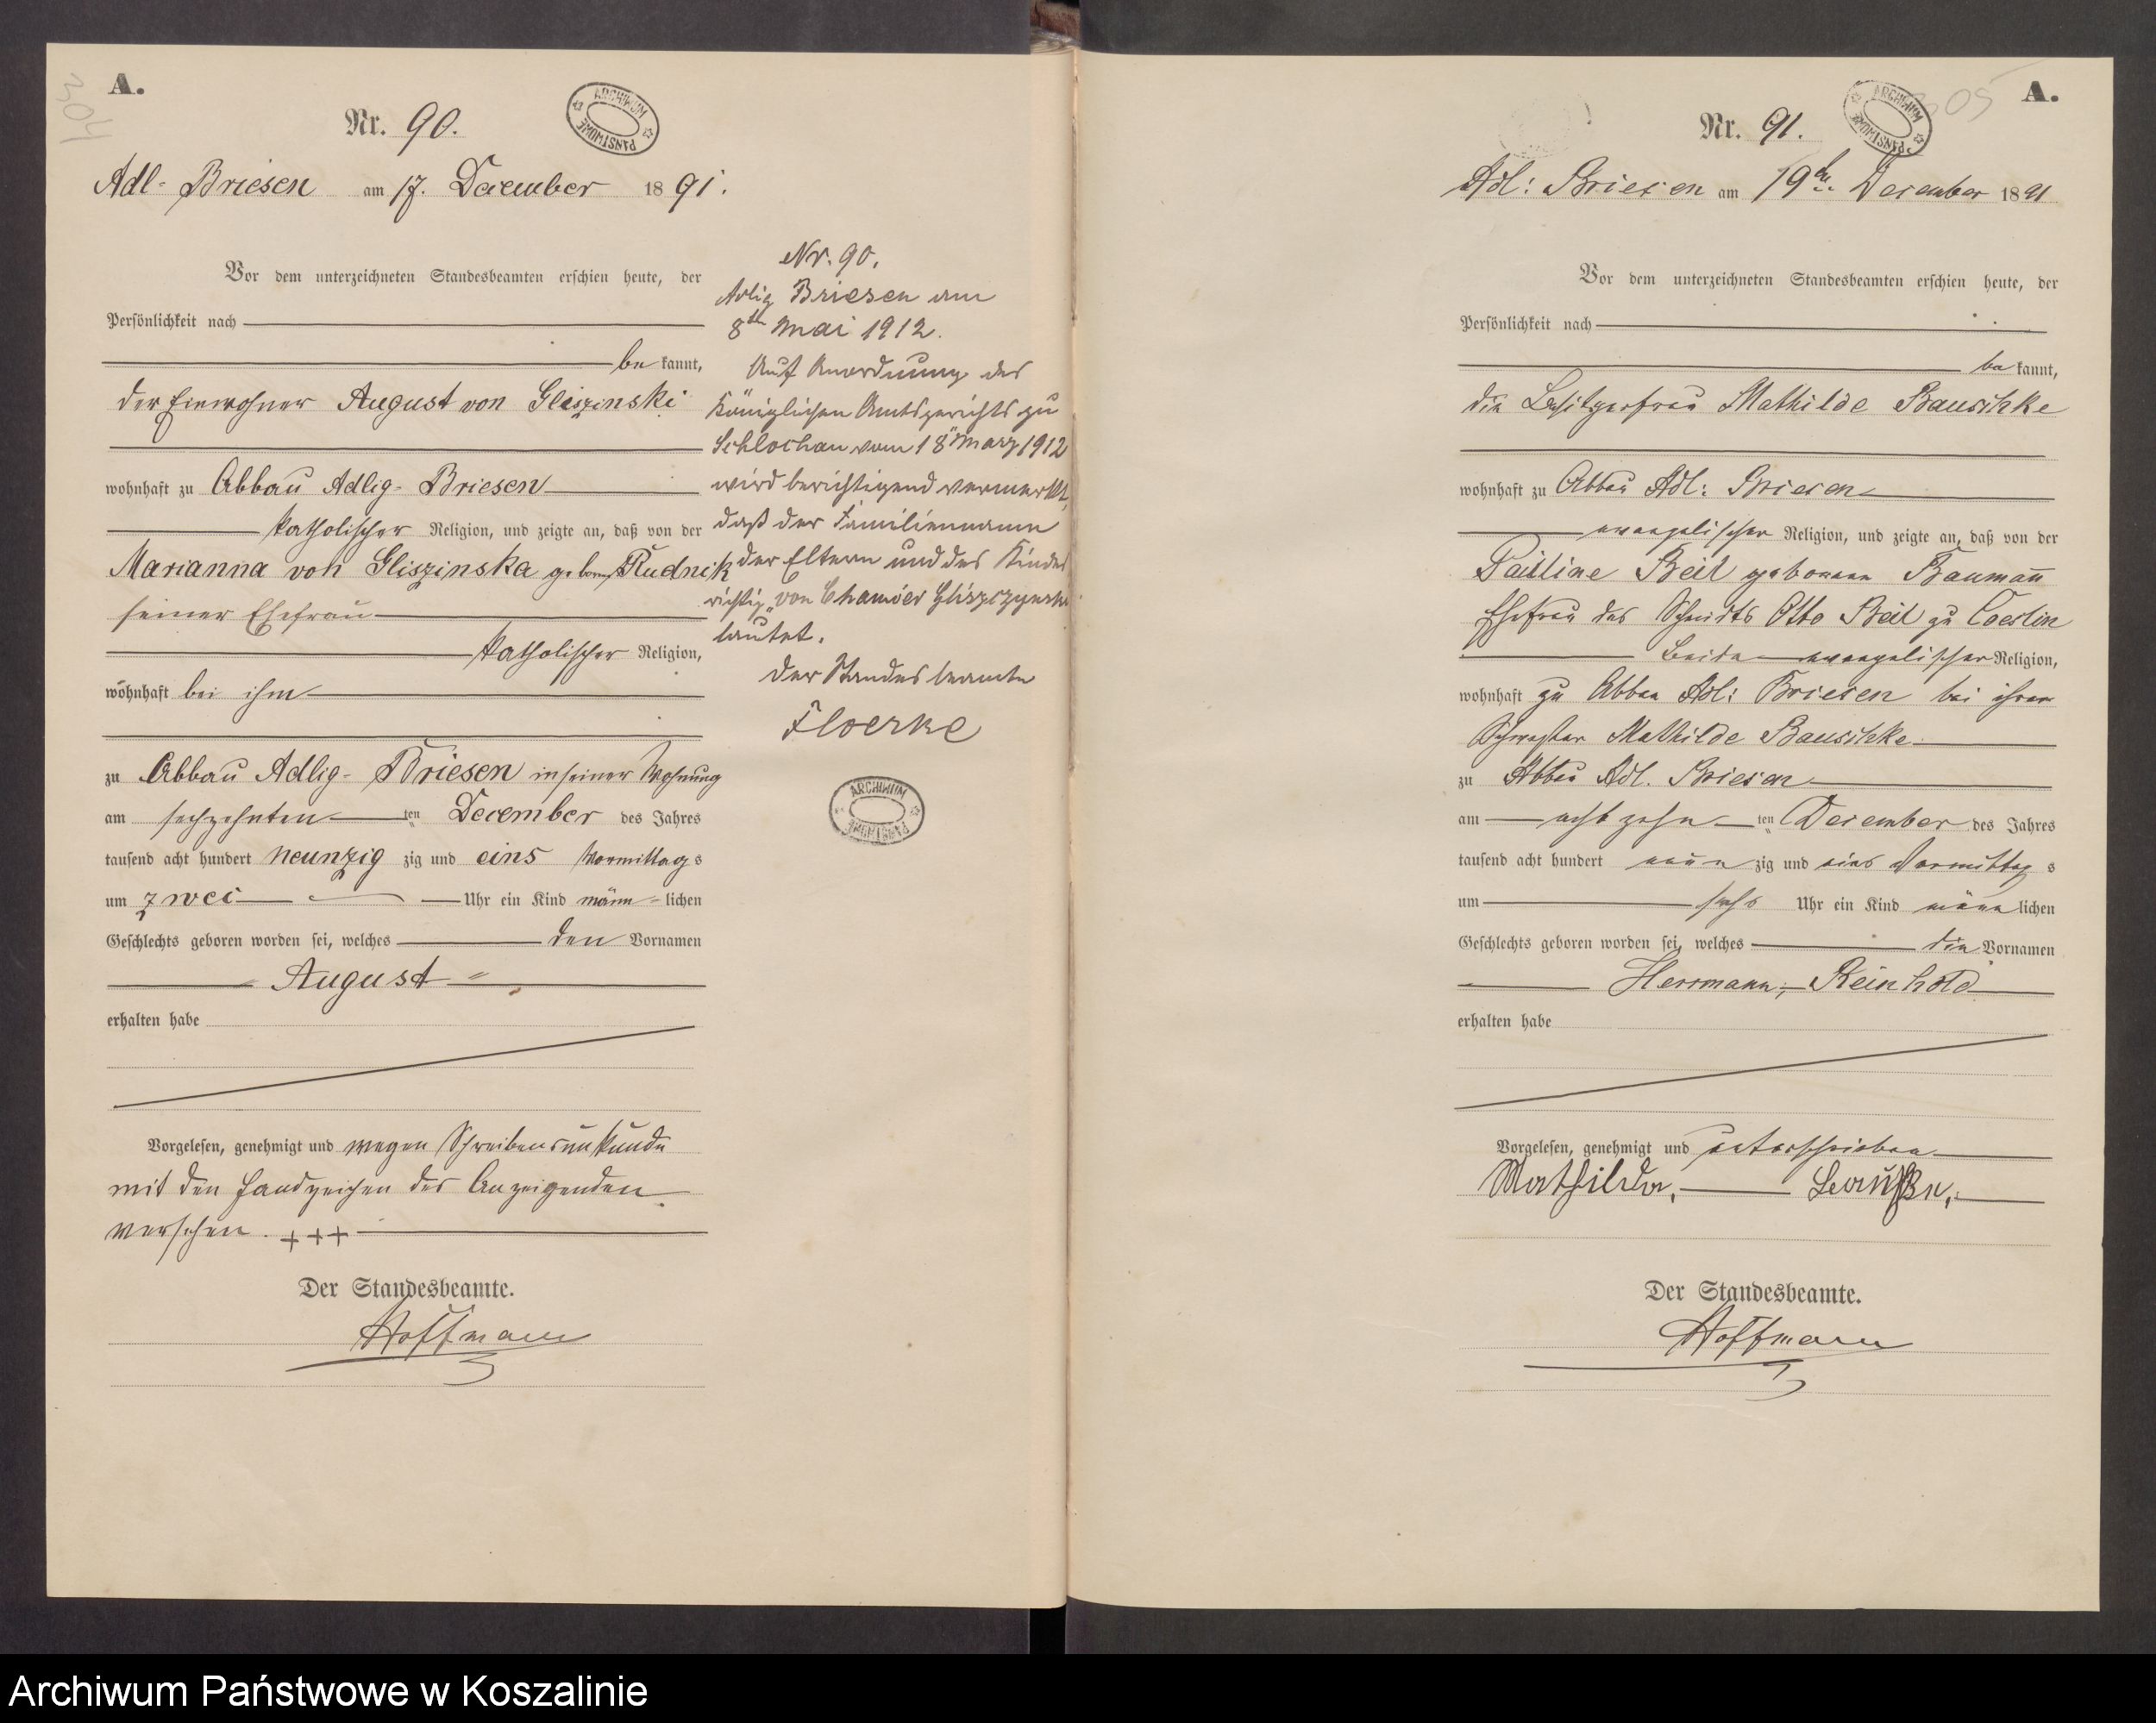 304
A.
Nr. 90.
ARCHIWUM PAŃSTWOWE
Adl- Briesen am 17. December 1891.
Vor dem unterzeichneten Standesbeamten erschien heute, der
Persönlichkeit nach
be kannt,
der Einwohner August von Gliszinski
wohnhaft zu Abbau Adlig- Briesen
katholischer Religion, und zeigte an, daß von der
Marianna von Gliszinska geborne Rudnik
seiner Ehefrau
katholischer Religion,
wohnhaft bei ihm
zu Abbau Adlig- Briesen in seiner Wohnung
am sechzehnten ten December des Jahres
tausend acht hundert neunzig zig und eins Vormittags
um zwei Uhr ein Kind männ-lichen
Geschlechts geboren worden sei, welches den Vornamen
August
erhalten habe
Vorgelesen, genehmigt und wegen Schreibensunkunde
mit den Handzeichen des Anzeigenden
versehen. +++
Der Standesbeamte.
Hoffmann
Nr. 90.
Adlig Briesen am
8ten Mai 1912.
Auf Anordnung des
Königlichen Amtsgerichts zu
Schlochau vom 18 März 1912
wird berichtigend vermerkt,
daß der Familienname
der Eltern und des Kindes
richtig "von Chamier Gliszczynski
lautet.
Der Standesbeamte
Floerke
ARCHIWUM PAŃSTWOWE
305
A.
Nr. 91.
ARCHIWUM PAŃSTWOWE
Adl: Briesen am 19ten December 1891
Vor dem unterzeichneten Standesbeamten erschien heute, der
Persönlichkeit nach
be kannt,
die Besitzerfrau Mathilde Bauschke
wohnhaft zu Abbau Adl: Briesen
evangelischer Religion, und zeigte an, daß von der
Pauline Beil geborene Baumann
Ehefrau des Schmidts Otto Beil zu Coeslin
beide evangelischer Religion,
wohnhaft zu Abbau Adl: Briesen bei ihrer
Schwester Mathilde Bauschke
zu Abbau Adl. Briesen
am acht zehn ten December des Jahres
tausend acht hundert neun zig und eins Vormittag s
um sechs Uhr ein Kind männ lichen
Geschlechts geboren worden sei, welches die Vornamen
Herrmann, Reinhold
erhalten habe
Vorgelesen, genehmigt und unterschrieben
Mathilde, Bauschke,
Der Standesbeamte.
Hoffmann
Archiwum Państwowe w Koszalinie